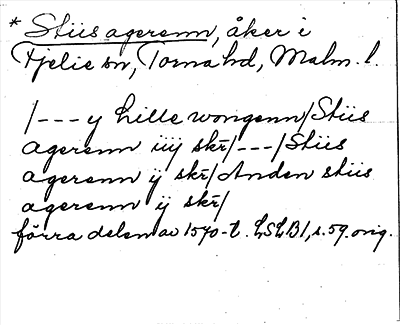 * Stiis agerenn, åker i
Fjelie sn, Torna hd, Malm. l.
/--- y hille wongenn/Stiis
agerenn iiij skr̄/---/Stiis
agerenn ij skr̄/Anden stiis
agerenn ij skr̄/
förra delen av 1570-t. LSLB 1, s. 59. orig.